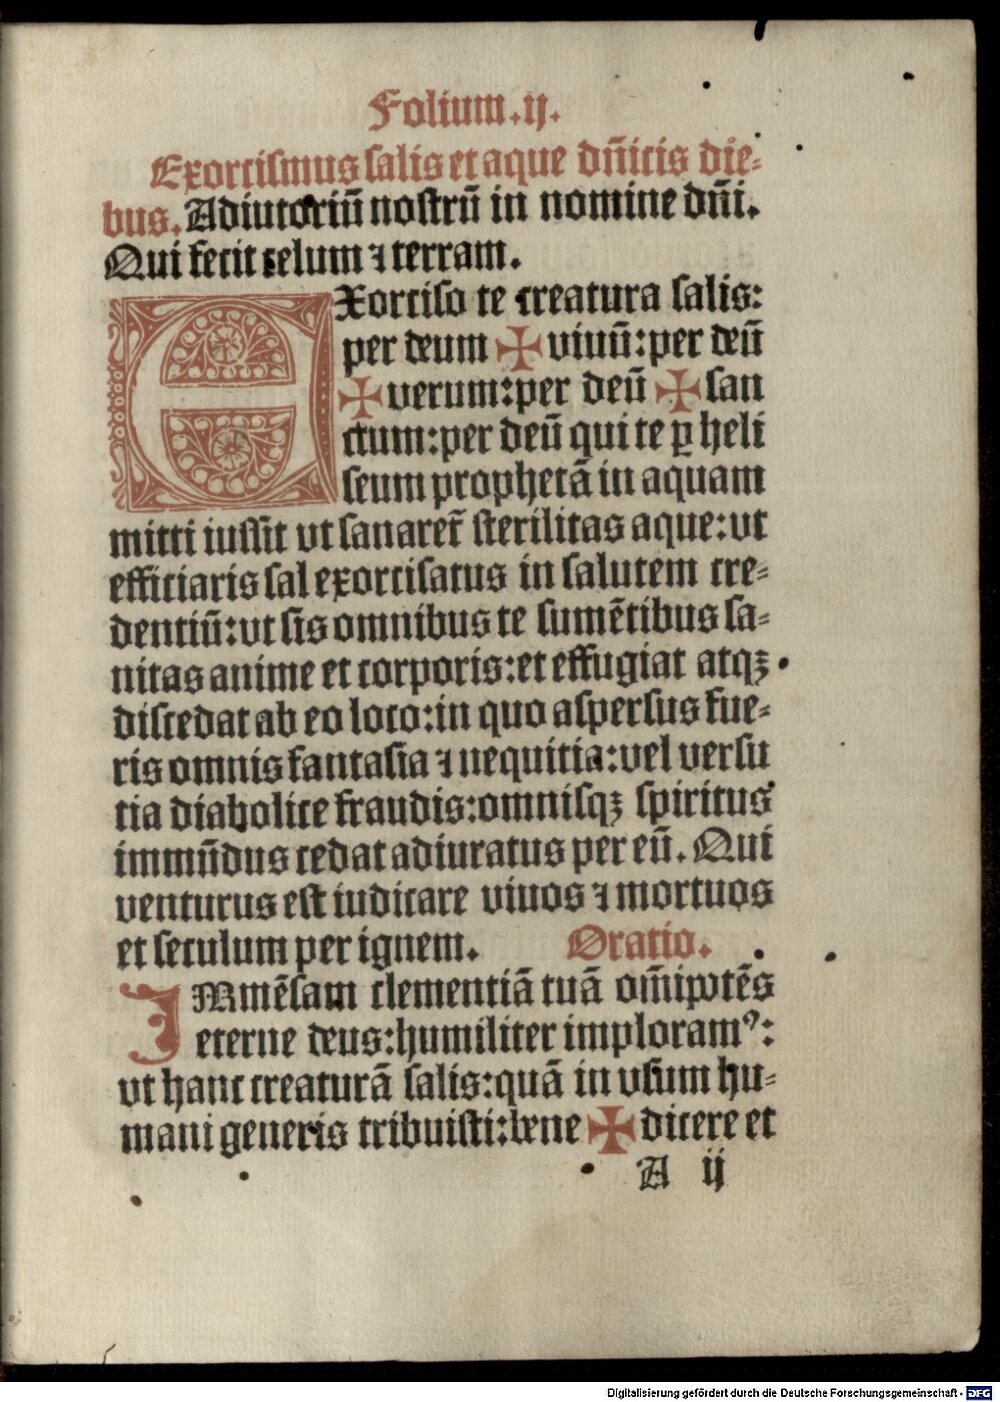 Folium.ij.
Exorcismus salis et aque dn̄icis die-
bus. Adiutoriū nostrū in nomine dn̄i.
Qui fecit celum ⁊ terram.
EXorciso te creatura salis:
per deum ✠ viuū: per deū
✠ verum: per deū ✠ san
ctum: per deū qui te ꝑ heli
seum prophetā in aquam
mitti iussit vt sanaret̄ sterilitas aque: vt
efficiaris sal exorcisatus in salutem cre-
dentiū: vt sis omnibus te sumētibus sa-
nitas anime et corporis: et effugiat atqꝫ
discedat ab eo loco: in quo aspersus fue-
ris omnis fantasia ⁊ nequitia: vel versu
tia diabolice fraudis: omnisqꝫ spiritus
immūdus cedat adiuratus per eū. Qui
venturus est iudicare viuos ⁊ mortuos
et seculum per ignem. Oratio.
IMmēsam clementiā tuā om̄ipotēs
eterne deus: humiliter imploramꝰ:
vt hanc creaturā salis: quā in vsum hu-
mani generis tribuisti: bene ✠ dicere et
A ij
Digitalisierung gefördert durch die Deutsche Forschungsgemeinschaft - DFG